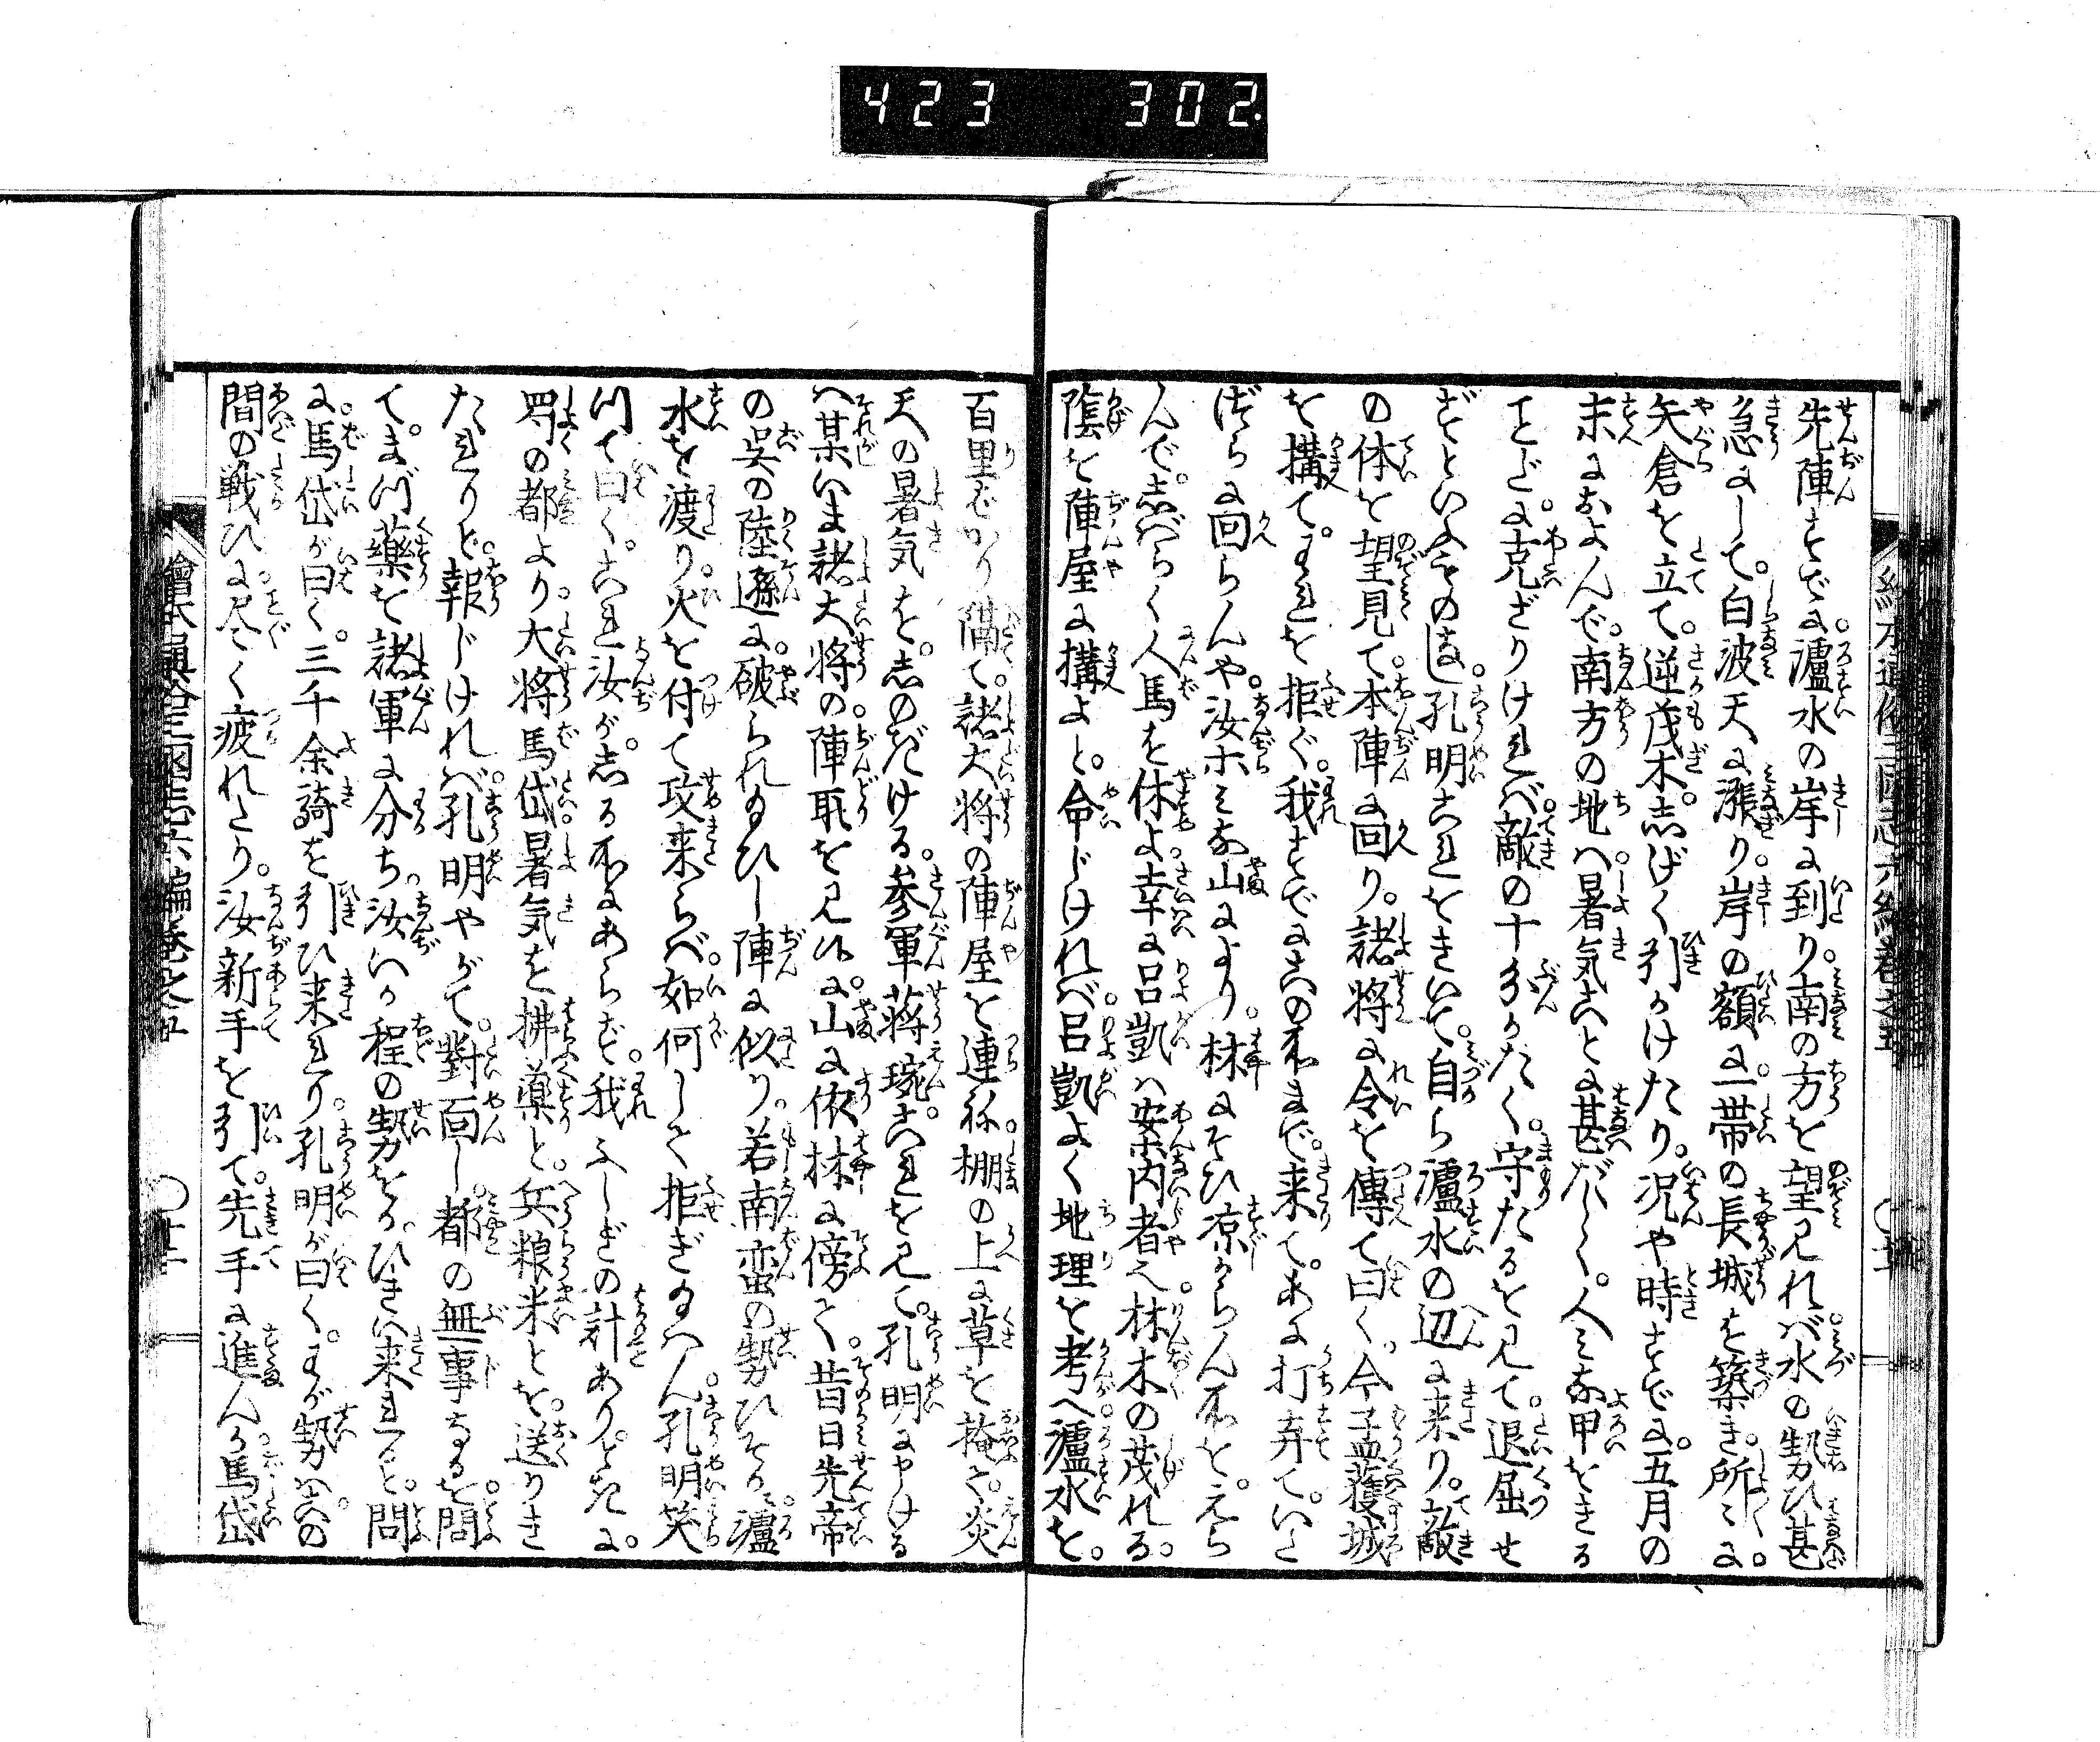 423 302.
先陣すでに。瀘水の岸に到り。南の方を望見れバ。水の勢ひ甚
急にして。白波天に漲り。岸の額に。一帯の長城を築き。所々に。
矢倉を立て。逆茂木。志げく引かけたり。况や時すでに。五月の
末におよんで。南方の地ハ。暑気ことに甚だしく。人ミな甲をきる
ことだに克ざりけれバ。敵の十分かたく。守たるを見て。退屈せ
ずといふものなし。孔明これをきいて。自ら瀘水の辺に来り。敵
の体を望見て。本陣に回り。諸将に令を傳て曰く。今孟獲城
を搆て。われを拒ぐ。我すでにこの所まで。来て。あに打弃て。いた
づらに回らんや。汝ホミな山により。林にそひ涼からん所を。えら
んで。志ばらく人馬を休よ。幸に呂凱ハ案内者也。林木の茂れる。
陰を陣屋に搆よと。命じけれバ。呂凱よく地理を考へ瀘水を。
百里ばかり隔て。諸大将の陣屋を連ね。棚の上に草を掩て。炎
天の暑気を。志のぎける。参軍蒋琬。これを見て。孔明に申ける
ハ某いま諸大将の。陣取を見候に。山に依林に傍て。昔日先帝
の呉の陸遜に。破られ給ひし陣に似り。若南蛮の勢ひそかに。瀘
水を渡り。火を付て攻来らバ。如何して拒ぎ給ハん。孔明笑
つて曰く。これ汝が。志る所にあらず。我ふしぎの計ありとぞ。時に。
蜀の都より。大将馬岱。暑気を拂薬と。兵粮米とを。送りき
たれりと。報じけれバ。孔明やがて。對面し。都の無事なるを。問
て。まづ薬を諸軍に分ち。汝いか程の勢をか。ひきい来ると。問
に。馬岱が曰く。三千余騎を引ひ来れり。孔明が曰く。わが勢ハ。この
間の戦ひに。尽く疲れたり。汝新手を引て。先手に進んか。馬岱
繪本通俗三國志六編巻之五
繪本通俗三國志六編巻之五